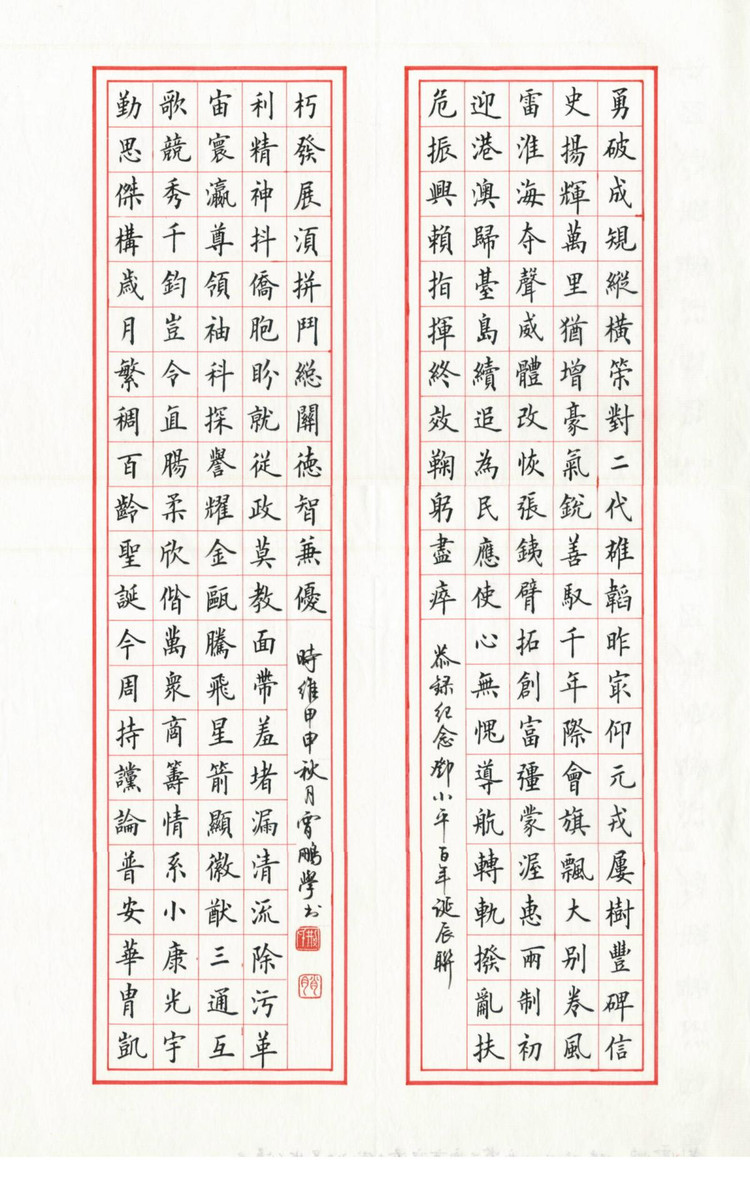 勇破成規縱橫策對二代雄韜昨寀仰元戎屢樹豐碑信
史揚輝萬里猶增豪氣銳善馭千年際會旗飄大别卷風
雷淮海夺聲威體改恢張銕臂拓創富彊蒙渥惠兩制初
迎港澳歸臺島續追為民應使心無愧導航轉軌撥亂扶
危振興賴指揮終效鞠躬盡瘁
恭録紀念鄧小平百年誕辰聯
勤思傑構歲月繁稠百齡聖誕今周持讜論普安華胄凱
歌競秀千鈞豈令直腸柔欣偕萬衆商籌情系小康光宇
宙寰瀛尊領袖科探譽耀金甌騰飛星箭顯徽猷三通互
利精神抖僑胞盼就從政莫教面帶羞堵漏清流除污革
朽發展須拼鬥總關德智兼優
時維甲申秋月霄鵬學书